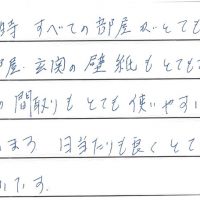 時 すべての部屋がとても
部屋、玄関の壁紙もとても
の間取りもとても使いやすい
まろ 日当たりも良くとて
いです。